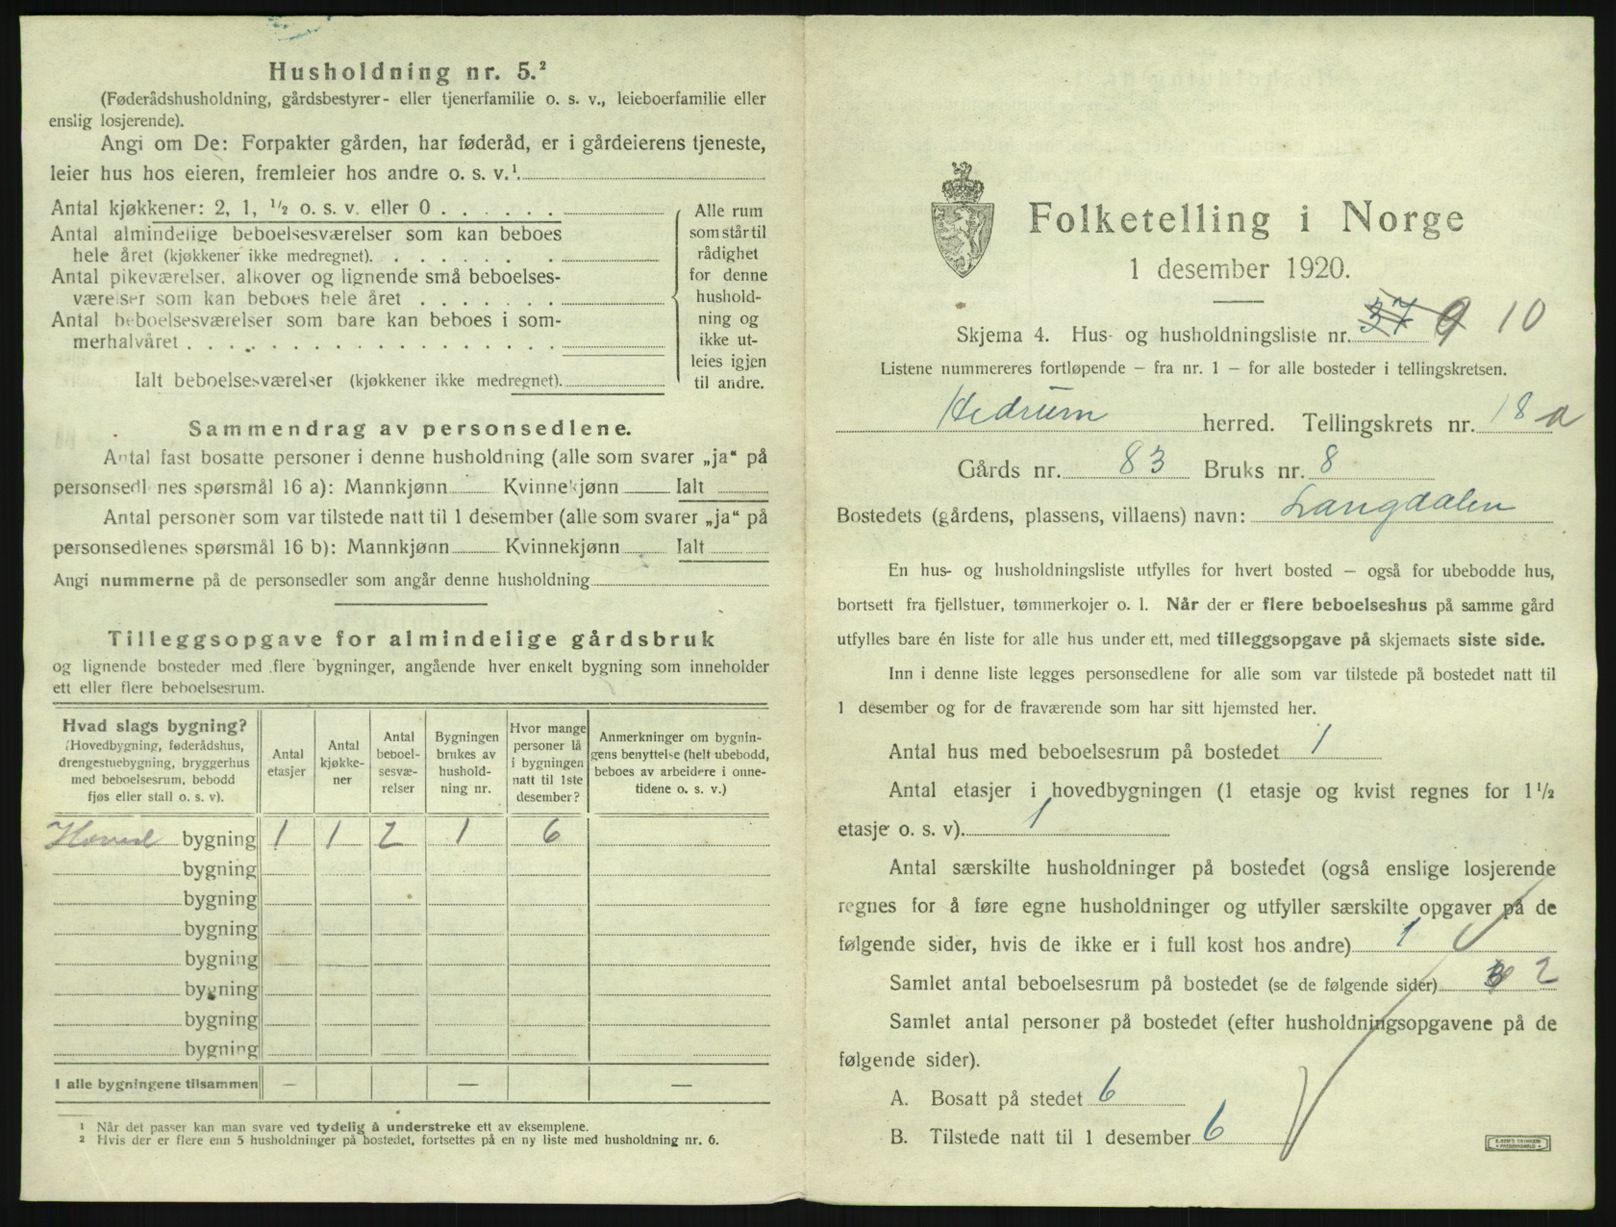 Husholdning nr. 5.²
(Føderådshusholdning, gårdsbestyrer- eller tjenerfamilie o. s. v., leieboerfamilie eller
enslig losjerende).
Angi om De: Forpakter gården, har føderåd, er i gårdeierens tjeneste,
leier hus hos eieren, fremleier hos andre o. s. v.¹.
Antal kjøkkener: 2, 1, ½ o. s. v. eller 0 . . . . . .
Antal almindelige beboelsesværelser som kan beboes
hele året (kjøkkener ikke medregnet). . . . . . . .
Antal pikeværelser, alkover og lignende små beboelses-
værelser som kan beboes hele året . . . . . . .
Antal beboelsesværelser som bare kan beboes i som-
merhalvåret . . . . . . . . . . . . . . . . . .
Ialt beboelsesværelser (kjøkkener ikke medregnet).
Alle rum
som står til
rådighet
for denne
hushold-
ning og
ikke ut-
leies igjen
til andre.
Sammendrag av personsedlene.
Antal fast bosatte personer i denne husholdning (alle som svarer „ja“ på
personsedlenes spørsmål 16 a): Mannkjønn Kvinnekjønn Ialt
Antal personer som var tilstede natt til 1 desember (alle som svarer „ja“ på
personsedlenes spørsmål 16 b): Mannkjønn Kvinnekjønn Ialt
Angi nummerne på de personsedler som angår denne husholdning
Tilleggsopgave for almindelige gårdsbruk
og lignende bosteder med flere bygninger, angående hver enkelt bygning som inneholder
ett eller flere beboelsesrum.
Hvad slags bygning?
(Hovedbygning, føderådshus,
drengestuebygning, bryggerhus
med beboelsesrum, bebodd
fjøs eller stall o. s. v).
Antal
etasjer
Antal
kjøkke-
ner
Antal
beboel-
sesvæ-
relser
Bygningen
brukes av
hushold-
ning nr.
Hvor mange
personer lå
i bygningen
natt til 1ste
desember?
Anmerkninger om bygnin-
gens benyttelse (helt ubebodd,
beboes av arbeidere i onne-
tidene o. s. v.)
Hoved bygning 1 1 2 1 6
bygning
bygning
bygning
bygning
bygning
bygning
bygning
I alle bygningene tilsammen — — —
¹ Når det passer kan man svare ved tydelig å understreke ett av eksemplene.
² Hvis der er flere enn 5 husholdninger på bostedet, fortsettes på en ny liste med husholdning nr. 6.
Folketelling i Norge
1 desember 1920.
Skjema 4. Hus- og husholdningsliste nr. 37 9 10
Listene nummereres fortløpende — fra nr. 1 — for alle bosteder i tellingskretsen.
Hedrum herred. Tellingskrets nr. 18 a
Gårds nr. 83 Bruks nr. 8
Bostedets (gårdens, plassens, villaens) navn: Langdalen
En hus- og husholdningsliste utfylles for hvert bosted — også for ubebodde hus,
bortsett fra fjellstuer, tømmerkojer o. l. Når der er flere beboelseshus på samme gård
utfylles bare én liste for alle hus under ett, med tilleggsopgave på skjemaets siste side.
Inn i denne liste legges personsedlene for alle som var tilstede på bostedet natt til
1 desember og for de fraværende som har sitt hjemsted her.
Antal hus med beboelsesrum på bostedet 1
Antal etasjer i hovedbygningen (1 etasje og kvist regnes for 1½
etasje o. s. v). 1
Antal særskilte husholdninger på bostedet (også enslige losjerende
regnes for å føre egne husholdninger og utfyller særskilte opgaver på de
følgende sider, hvis de ikke er i full kost hos andre) 1
Samlet antal beboelsesrum på bostedet (se de følgende sider) 3 2
Samlet antal personer på bostedet (efter husholdningsopgavene på de
følgende sider).
A. Bosatt på stedet 6
B. Tilstede natt til 1 desember 6